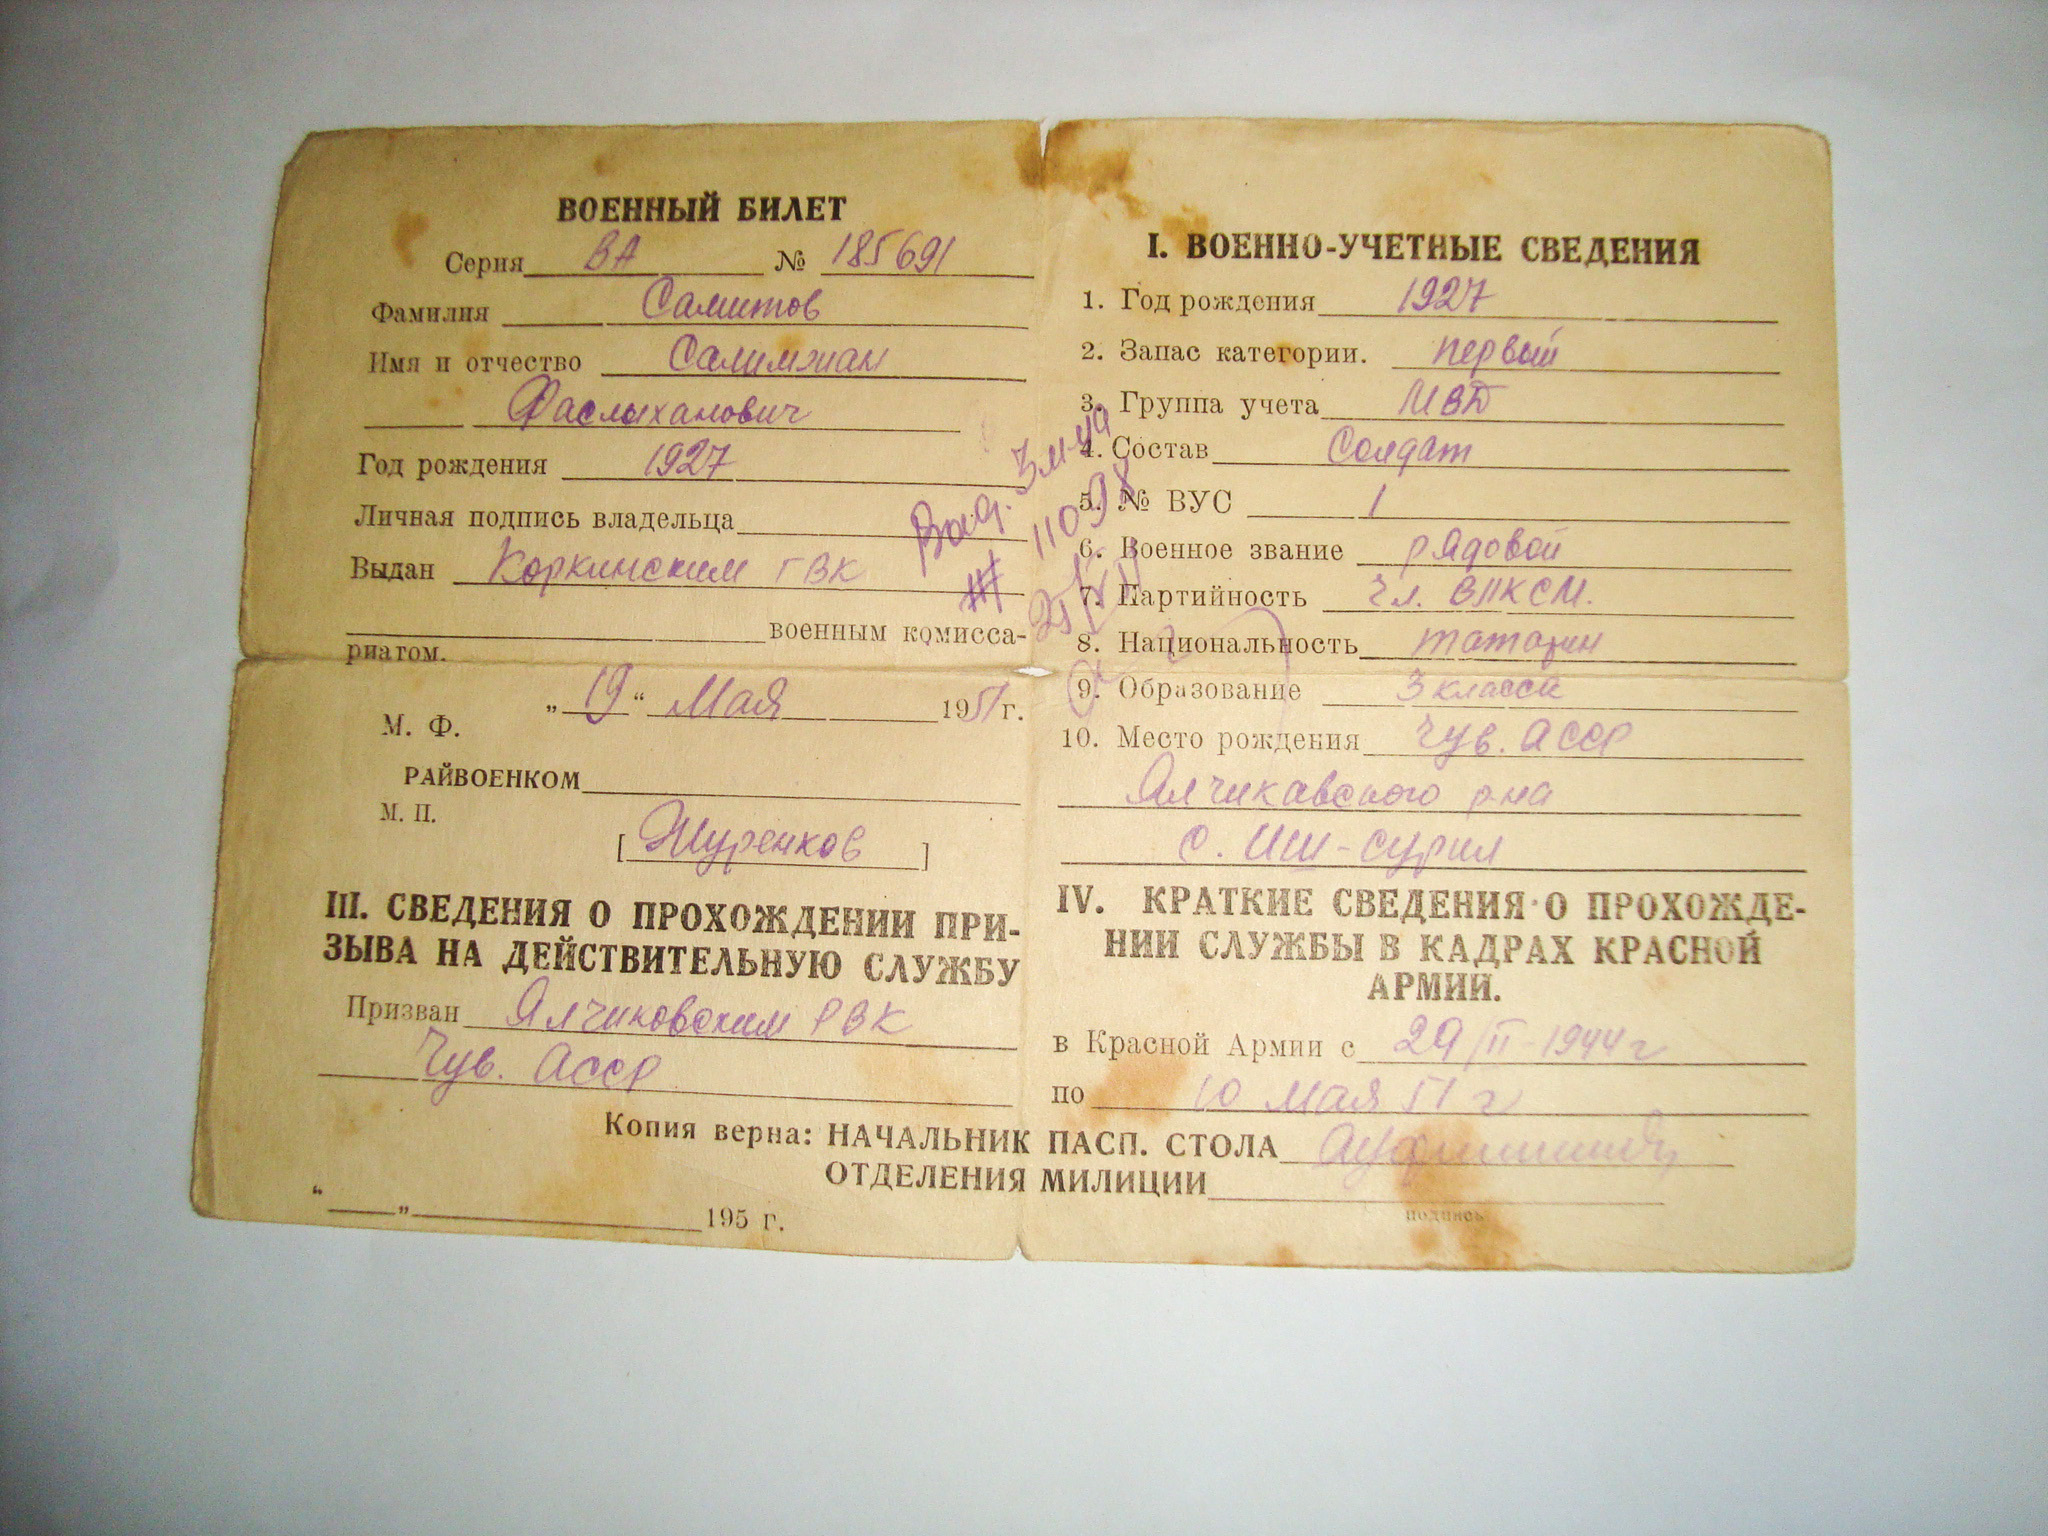 ВОЕННЫЙ БИЛЕТ
Серия ВА № 185691
Фамилия Самитов
Имя и отчество Салимжан
Фаслыханович
Год рождения 1927
Личная подпись владельца
Выдан Коркинским ГВК
военным комисса-
риатом.
„19“ Мая 1951 г.
М. Ф.
РАЙВОЕНКОМ
М. П.
[Журенков]
III. СВЕДЕНИЯ О ПРОХОЖДЕНИИ ПРИ-
ЗЫВА НА ДЕЙСТВИТЕЛЬНУЮ СЛУЖБУ
Призван Ялчиковским РВК
Чув. АССР
I. ВОЕННО-УЧЕТНЫЕ СВЕДЕНИЯ
1. Год рождения 1927
2. Запас категории. первый
3. Группа учета МВД
4. Состав Солдат
5. № ВУС 1
6. Военное звание рядовой
7. Партийность Чл. ВЛКСМ.
8. Национальность татарин
9. Образование 3 класса
10. Место рождения Чув. АССР
Ялчикавского р-на
с.
IV. КРАТКИЕ СВЕДЕНИЯ О ПРОХОЖДЕ-
НИИ СЛУЖБЫ В КАДРАХ КРАСНОЙ
АРМИИ.
в Красной Армии с 29/II-1944 г
по 10 Мая 51 г
Копия верна: НАЧАЛЬНИК ПАСП. СТОЛА
ОТДЕЛЕНИЯ МИЛИЦИИ
подпись
“ „ 195 г.